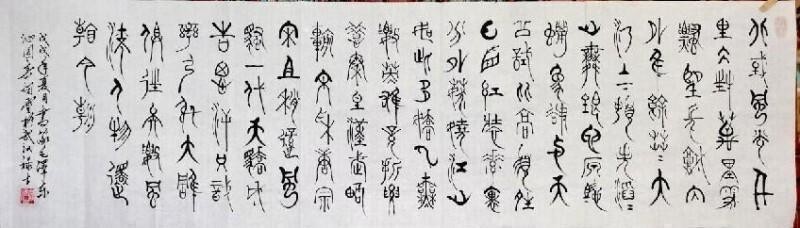 北國風光千
里冰封萬里雪
飄望長城內
外惟餘莽莽大
河上下頓失滔滔
山舞銀蛇原馳
蠟象欲與天
公試比高須晴
日看紅裝素裹
分外妖嬈江山
如此多嬌引無
數英雄競折腰
惜秦皇漢武略
輸文采唐宗
宋祖稍遜風
騷一代天驕成
吉思汗只識
彎弓射大雕
俱往矣數風
流人物還
看今朝
戊戌年夏月書篆毛澤東
沁園春雪於武漢